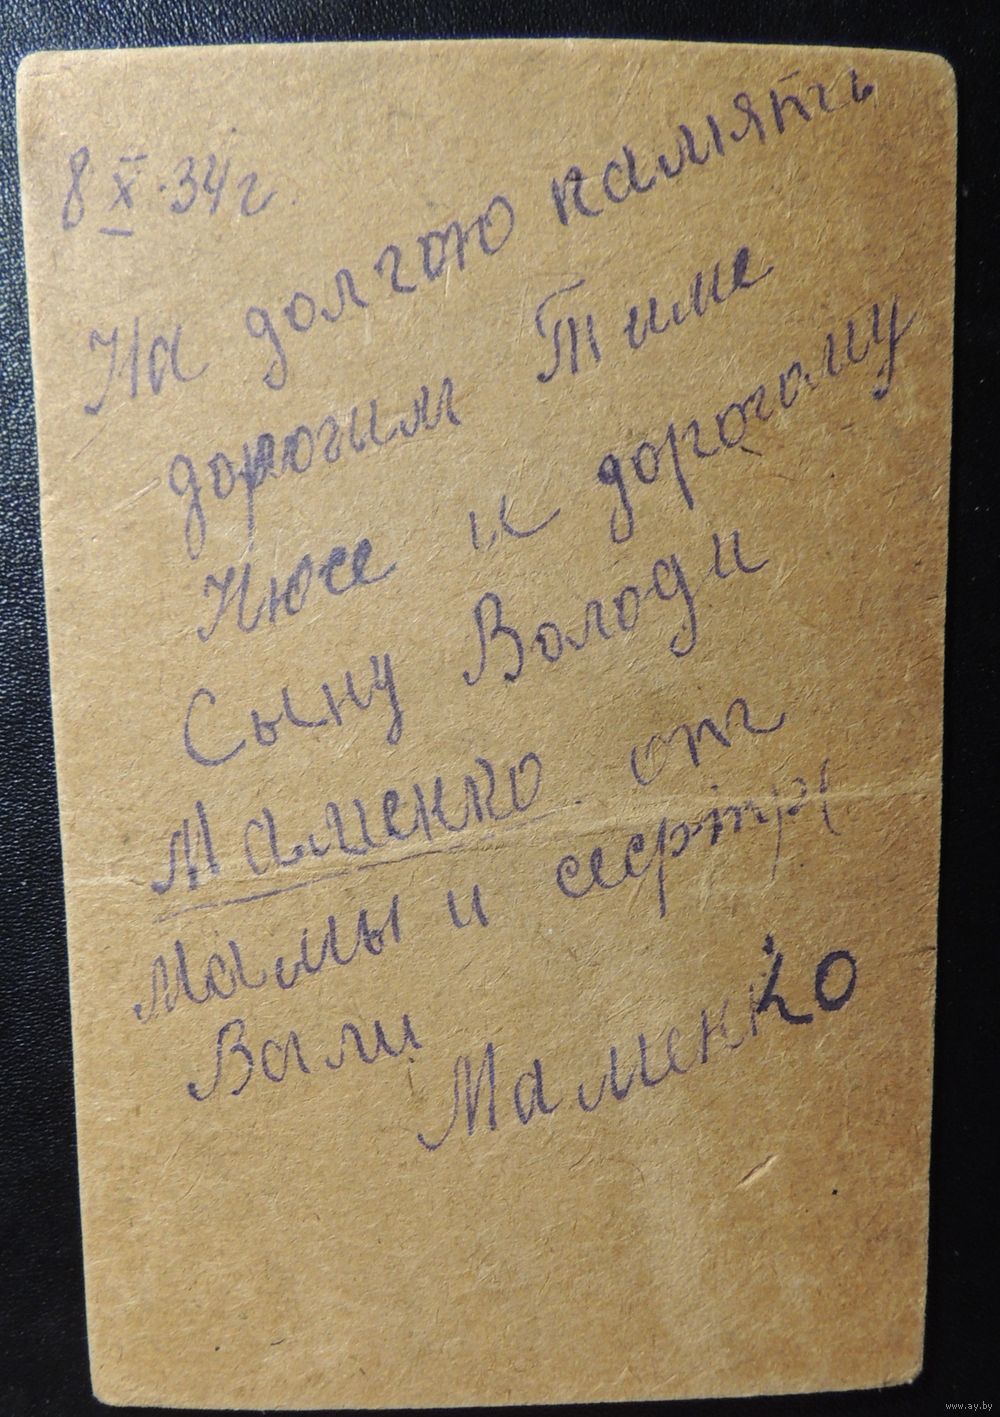 8 X 34 г.
На долгою память
дорогим Тиме
Нюсе и дорогому
Сыну Володи
Маменко от
Мамы и сестры
Вали
Маменко
www.ay.by